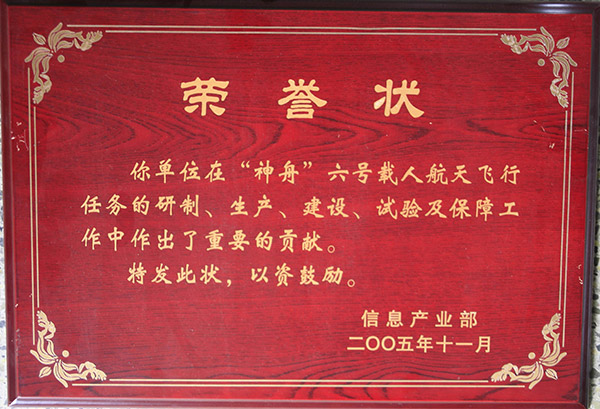 荣誉状
你单位在“神舟”六号载人航天飞行
任务的研制、生产、建设、试验及保障工
作中作出了重要的贡献。
特发此状，以资鼓励。
信息产业部
二〇〇五年十一月